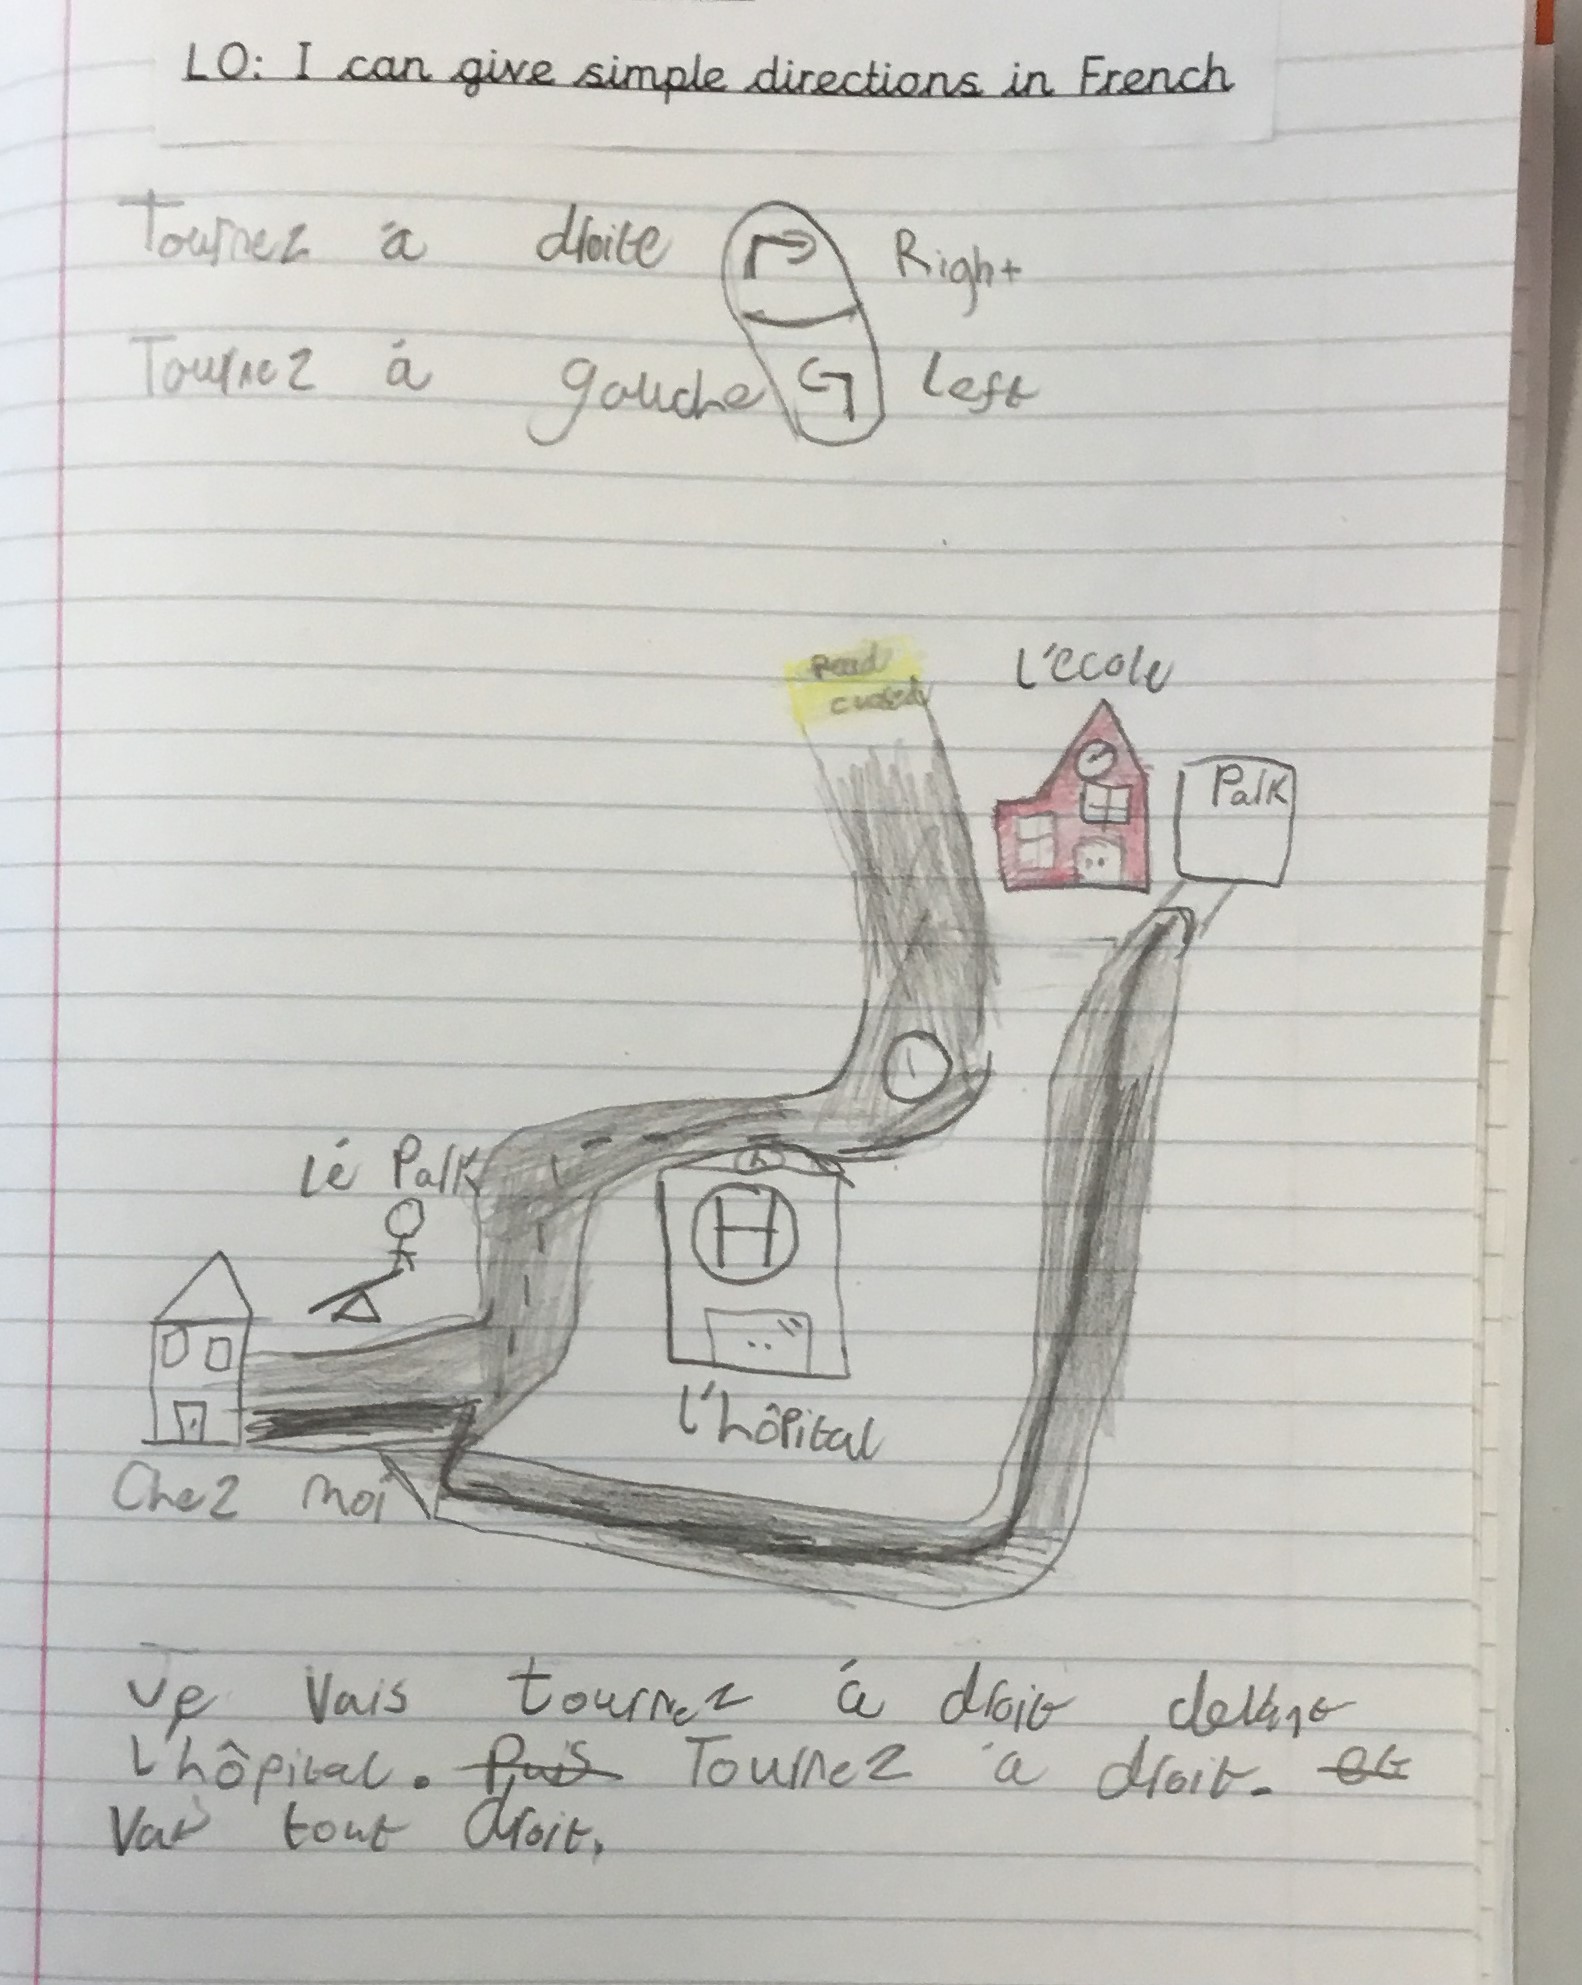 LO: I can give simple directions in French
Tournez à droite Right
Tournez à gauche Left
Road
closed
L'école
Park
Lé Park
H
l'hôpital
Chez moi
Je Vais tournez à droit devant
L'hôpital. Puis Tournez à droit. et
Vais tout droit.